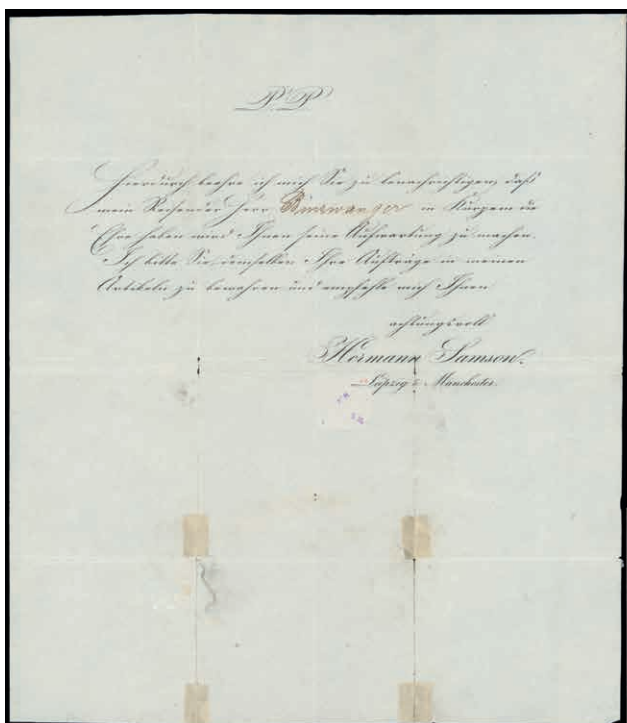 P. P.
Hierdurch beehre ich mich Sie zu benachrichtigen, daß
mein Reisender Herr Binswanger in Kurzem die
Ehre haben wird Ihnen seine Aufwartung zu machen.
Ich bitte Sie, demselben Ihre Aufträge in meinen
Artikeln zu bewahren und empfehle mich Ihnen
achtungsvoll
Hermann Samson.
Leipzig & Manchester.